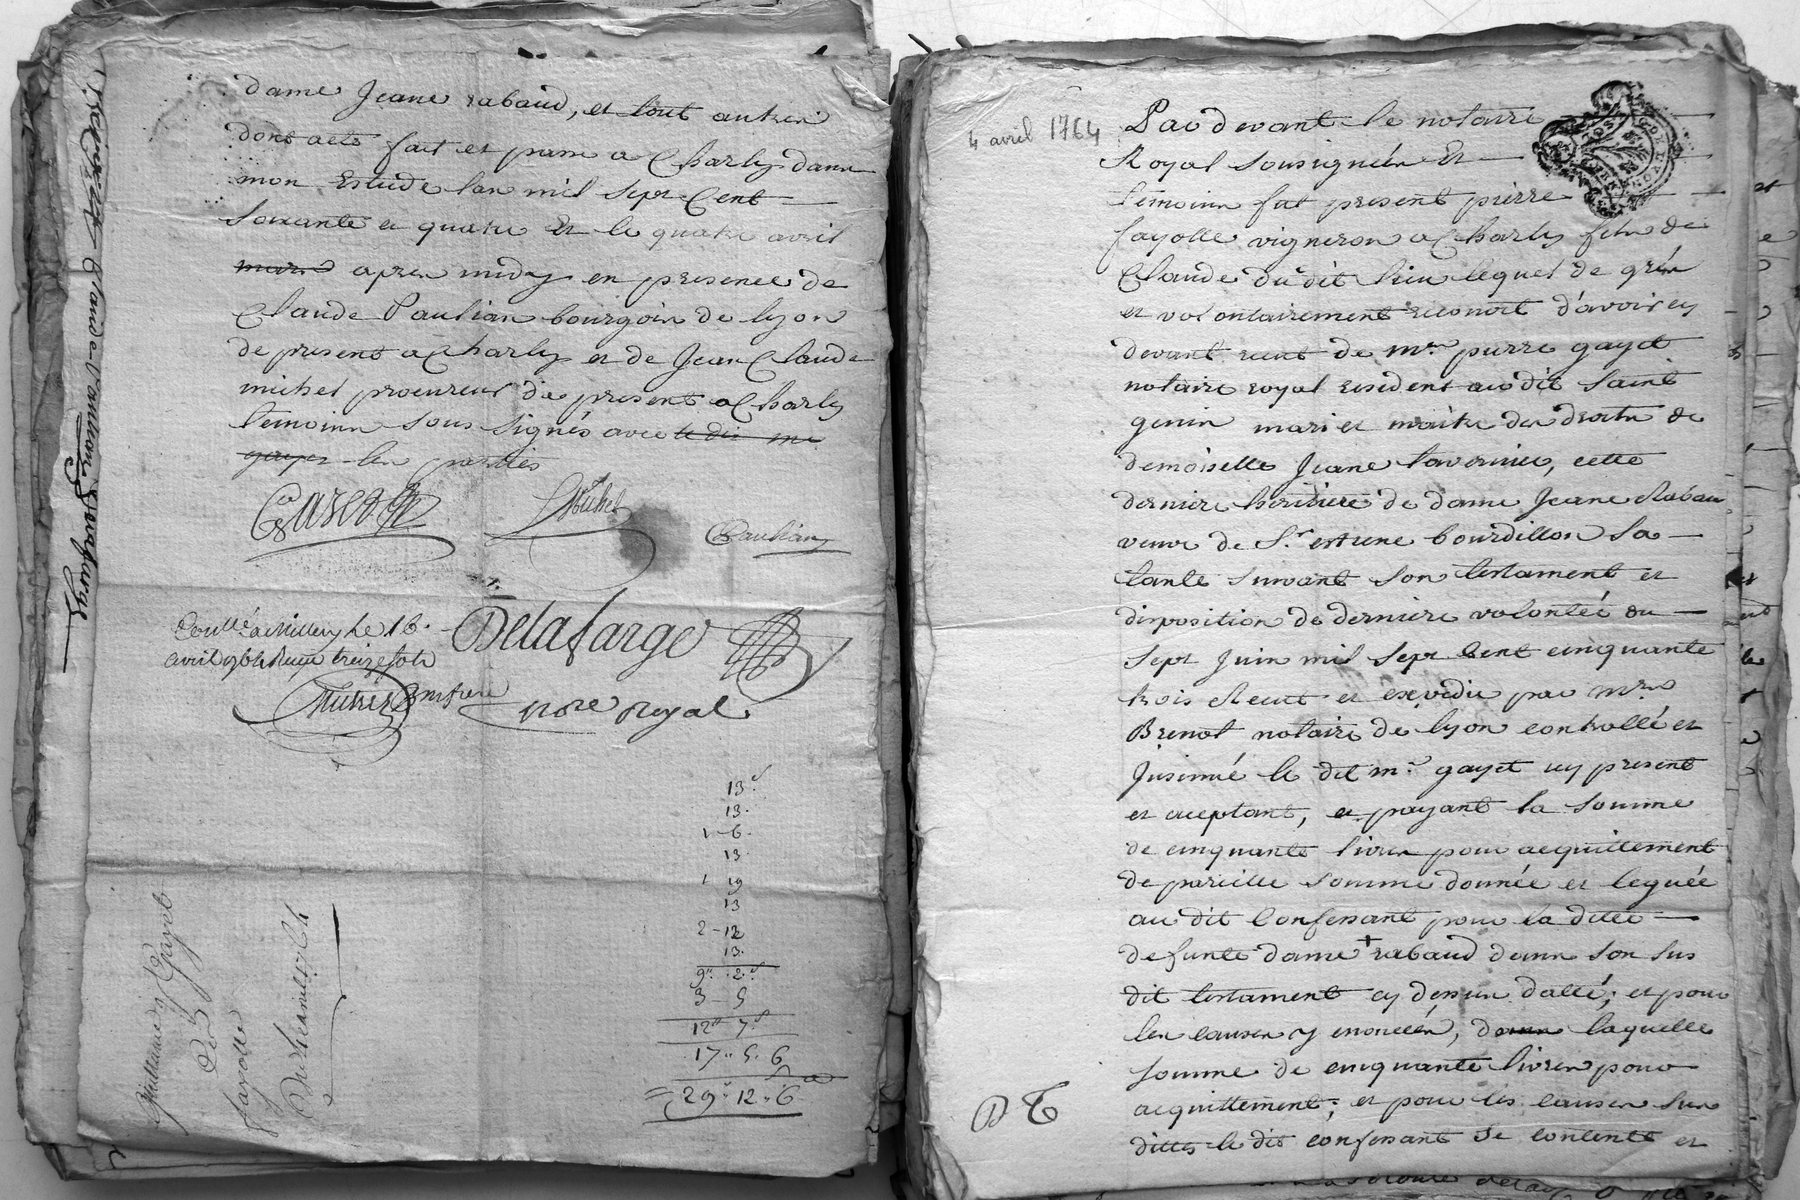 dame Jeane rabaud, et tout autres
dont acte fait et passé a Charly dans
mon Estude lan mil sept Cent
soixante et quatre Et le quatre avril
mars apres midy en presence de
Claude Paulian bourgois de lyon
de present a Charly et de Jean Claude
michel procureur de present a Charly
temoins sous signés avec le dit me
gayet les parties
Gayet
Michel
Paulian
Conllé a Millery le 16
avril 1764 Reçu treize sols
Delafarge
nore royal
13 s
13
1-6
13
1 19
13
2-12
13
9 2
3-5
12 7
17 5 6
29 12 6
Quittance
Gayet
Fayolle
4 avril 1764
Par devant le notaire
Royal sousignée Et
temoins fut present pierre
fayolle vigneron a Charly fils de
Claude du dit lieu lequel de grés
et volontairement reconoit d'avoir cy
devant receu de mr. pierre gayet
notaire royal resident au dit saint
genis mari et maitre des droits de
demoiselle Jeane tavernier, cette
derniere heritiere de dame Jeane Rabau
veuve de Sr. estiene bourdillon sa
tante suivant son testament et
disposition de derniere volontée du
sept Juin mil sept Cent cinquante
trois Receut et expedie par mre
Brenot notaire de lyon controllé et
Jnsinué le dit mr. gayet icy present
et aceptant, et payant la somme
de cinquante livres pour acquittement
de pareille somme donnée et leguée
au dit Confessant pour la ditte
defunte dame + rabaud dans son sus
dit testament cy dessus datté; et pour
les causes y enoncées, dans laquelle
somme de cinquante livres pour
acquittement; et pour les causes sus
dittes le dit confessant se contente et
D T